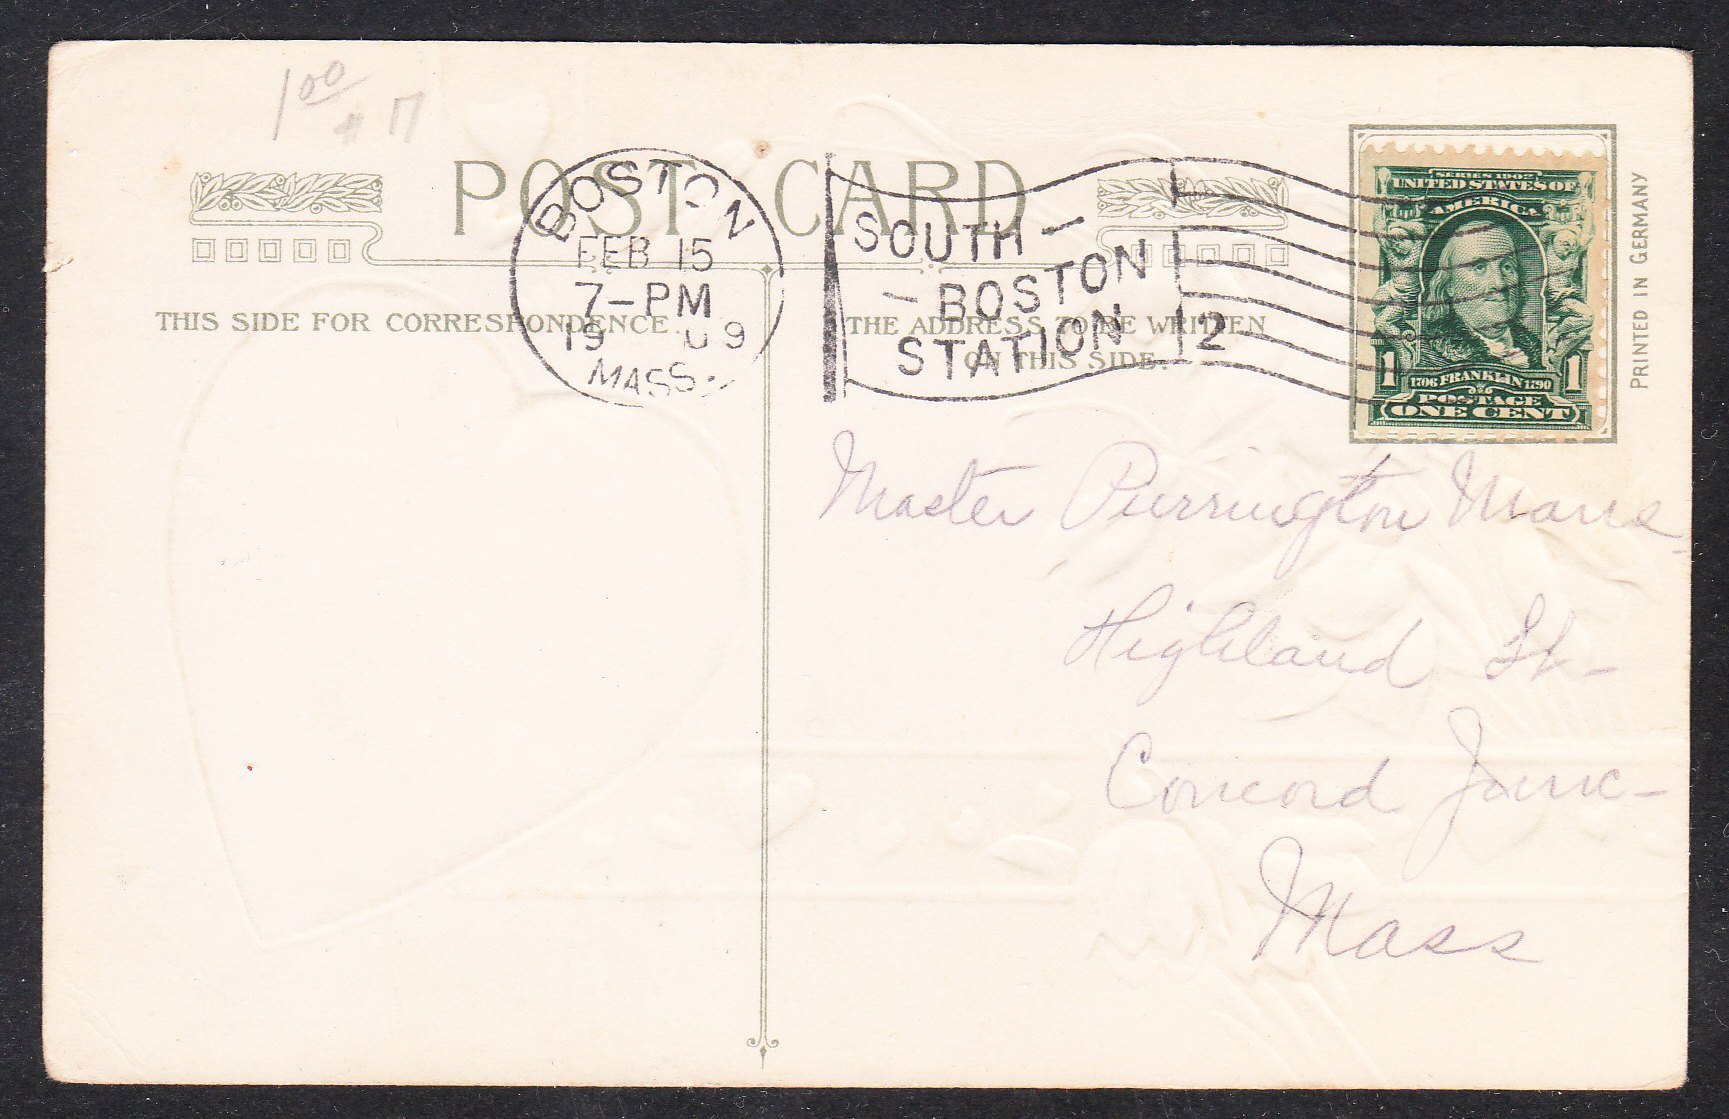 1 00
# 17
POST CARD
BOSTON
FEB 15
7-PM
19 09
MASS.
SOUTH-
-BOSTON
STATION
2
SERIES 1902
UNITED STATES OF
AMERICA
1706 FRANKLIN 1790
1 1
POSTAGE
ONE CENT
PRINTED IN GERMANY
THIS SIDE FOR CORRESPONDENCE.
THE ADDRESS TO BE WRITTEN
ON THIS SIDE.
Master Purrington
Highland St-
Concord Junc-
Mass